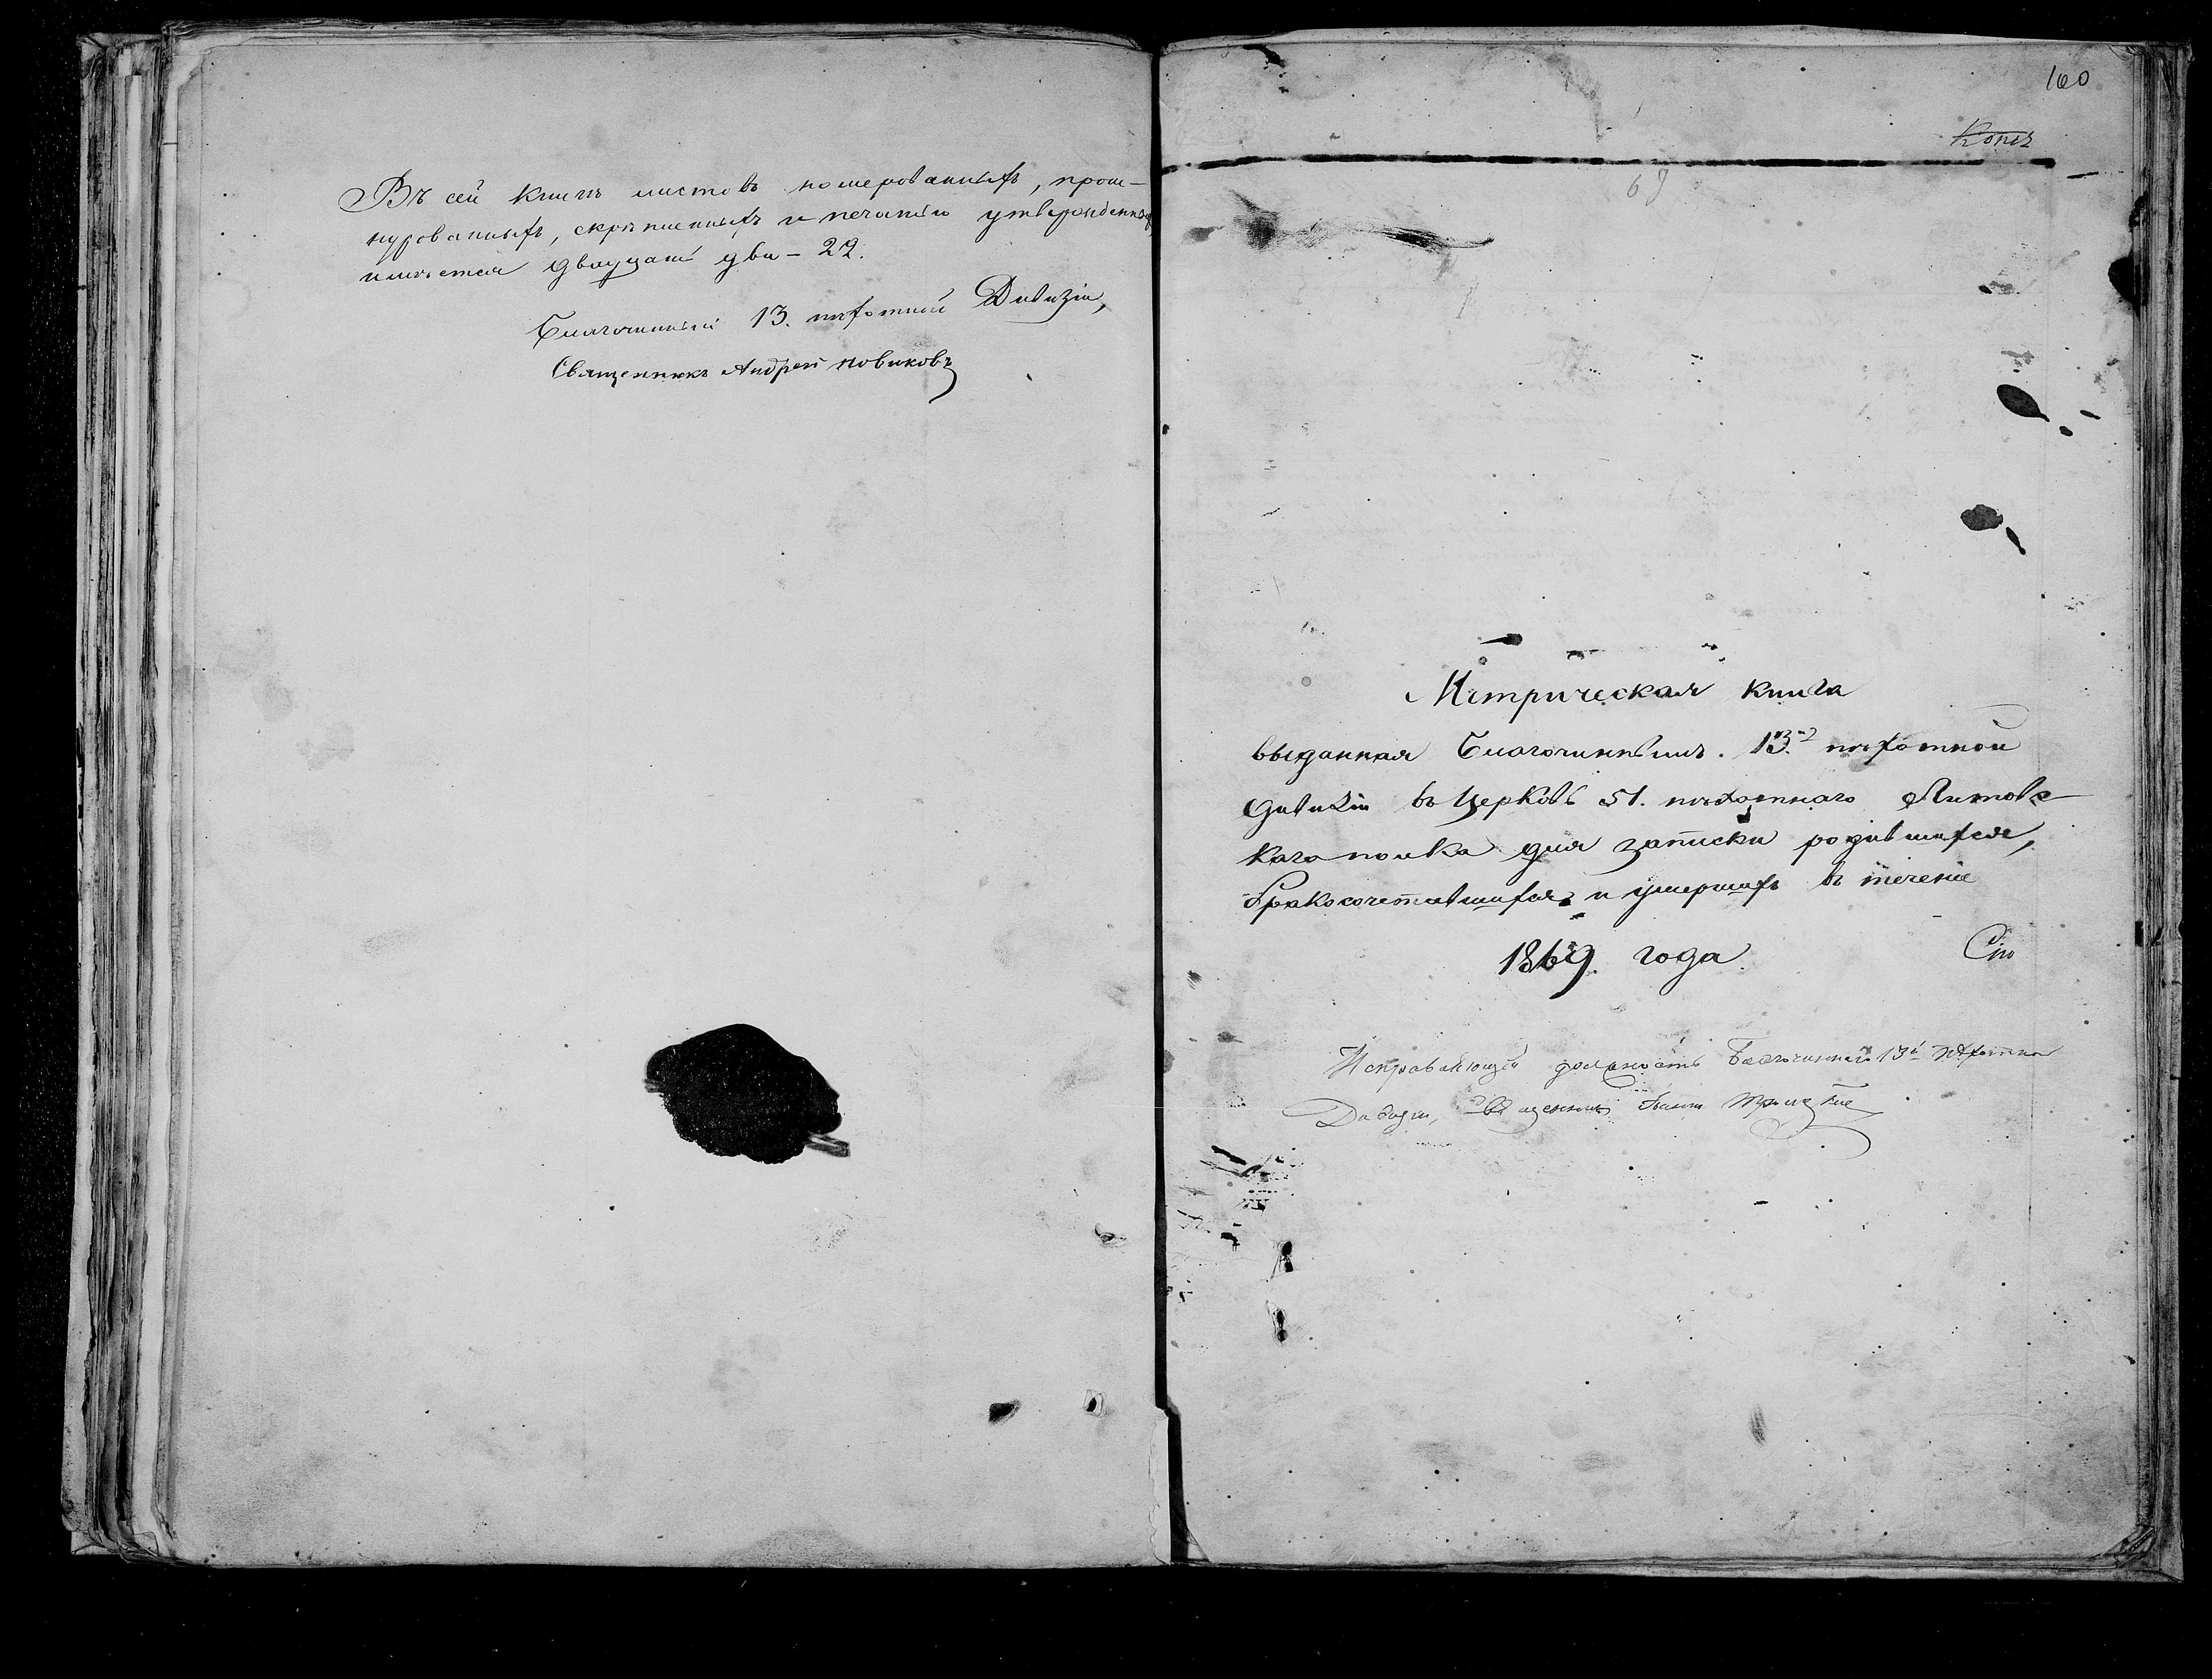 Въ сей книгѣ листовъ номерованныхъ, прош-
нурованныхъ, скрѣпленныхъ и печатью утвержденныхъ
имѣется двадцать два – 22.
Благочинный 13. пѣхотной Дивизіи,
Священникъ Андрей Новиковъ
160
Копія
69
Метрическая книга
выданная Благочиннымъ 13.й пѣхотной
дивизіи въ Церковь 51. пѣхотнаго Литовс-
каго полка для записки родившихся,
бракосочетавшихся и умершихъ въ теченіе
1869. года.
Исправляющій должность Благочиннаго 13й пѣхотной
Дивизіи, Священникъ Іоаннъ